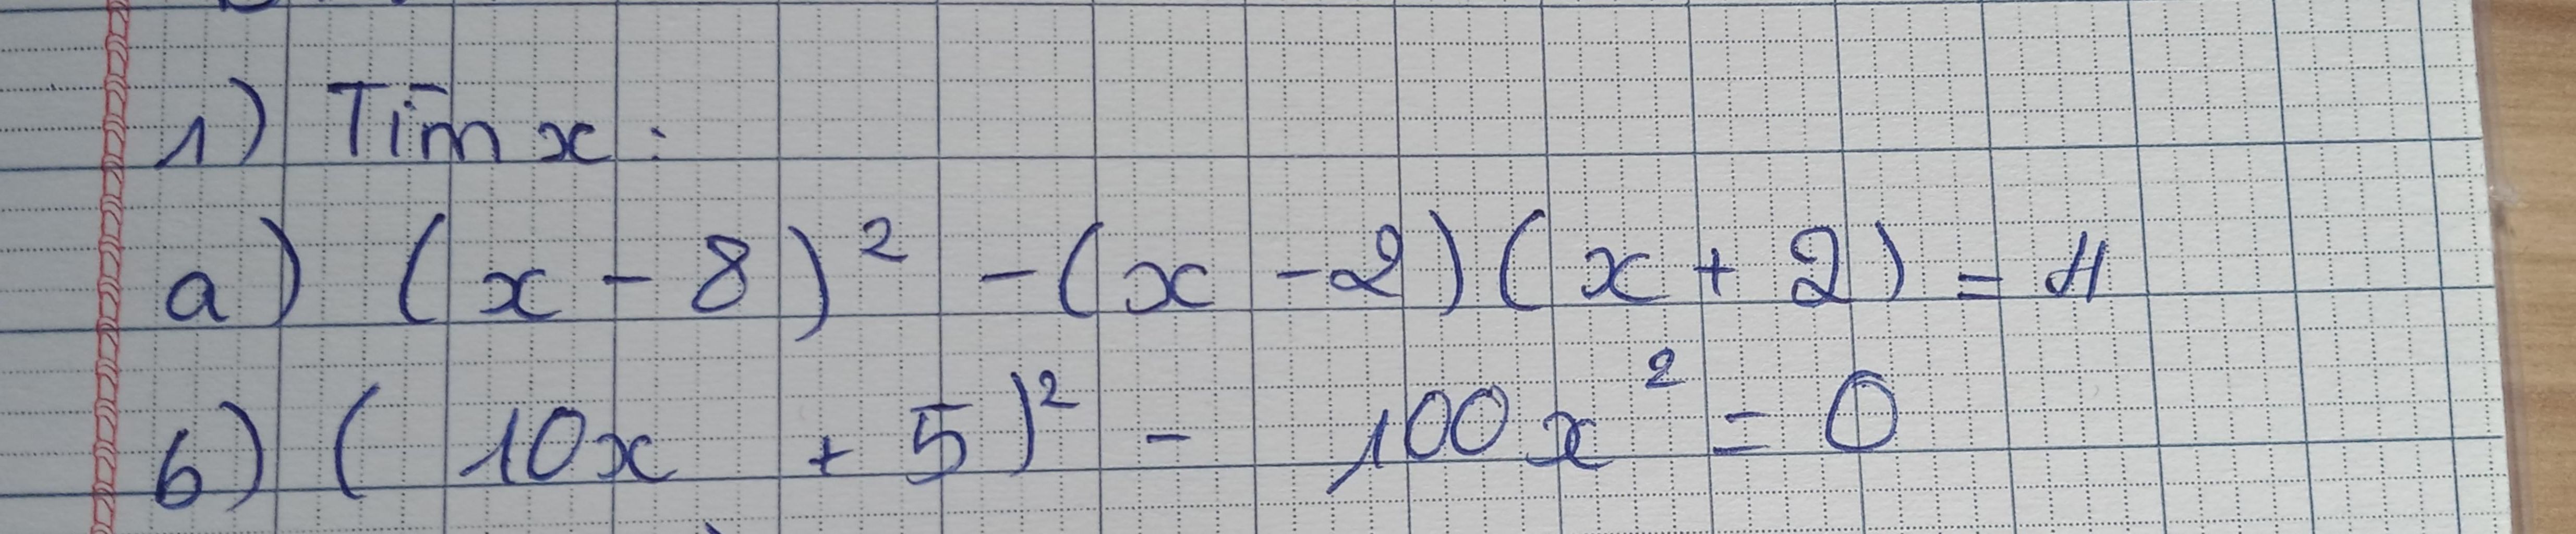 1) Tìm x :
a) (x - 8)² - (x - 2)(x + 2) = 4
b) (10x + 5)² - 100x² = 0